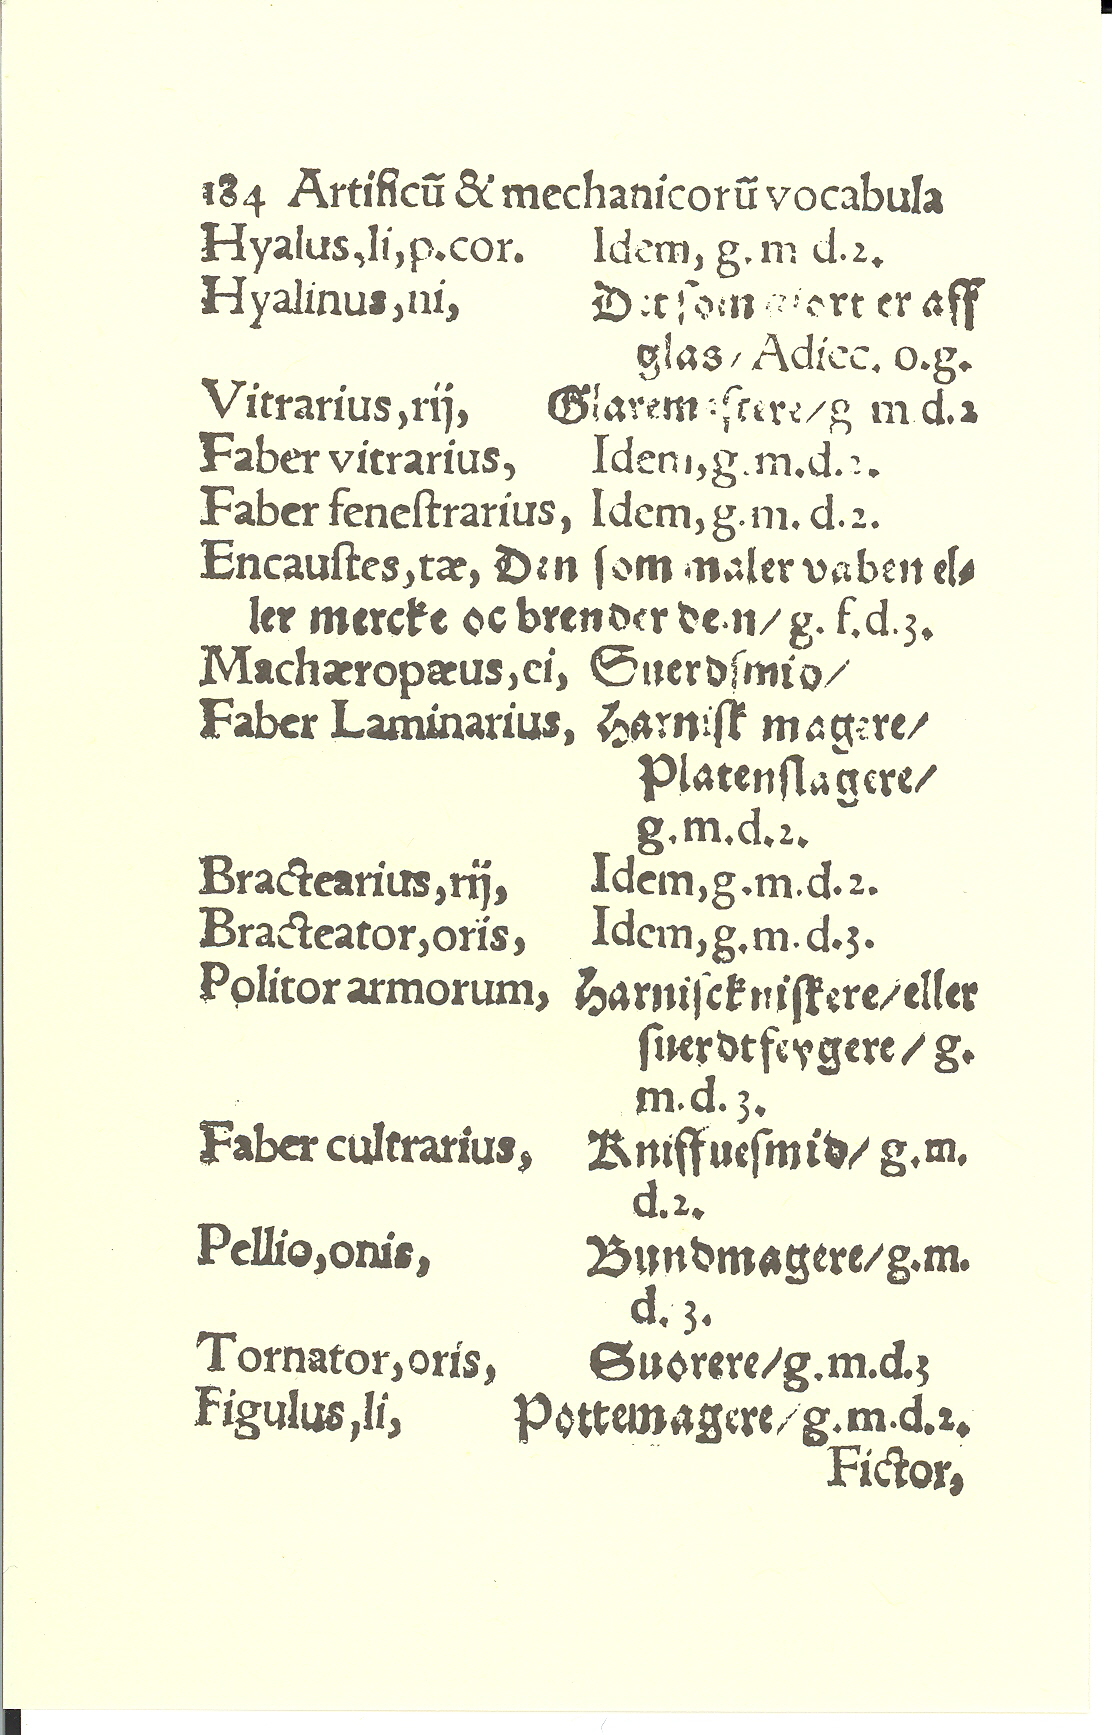 184 Artificũ & mechanicorũ vocabula
Hyalus,li,p.cor. Idem, g.m d.2.
Hyalinus,ni, Det som giort er aff
glas/ Adiec. o.g.
Vitrarius,rij, Glaremestere/g m d.2
Faber vitrarius, Idem,g.m.d.2.
Faber feneſtrarius, Idem,g.m.d.2.
Encauſtes,tæ, Den ſom maler vaben el⸗
ler mercke oc brender den/ g. f.d.3.
Machæropæus,ei, Suerdſmid/
Faber Laminarius, Harniſk magere/
Platenſlagere/
g.m.d.2.
Bractearius,rij, Idem,g.m.d.2.
Bracteator,oris, Idem,g.m.d.3.
Politor armorum, Harniſckuiſkere/eller
ſuerdtfeygere/ g.
m.d.3.
Faber cultrarius, Kniffueſmid/ g.m.
d.2.
Pellio,onis, Bundmagere/g.m.
d.3.
Tornator,oris, Suorere/g.m.d.3
Figulus,li, Pottemagere/g.m.d.2.
Fictor,